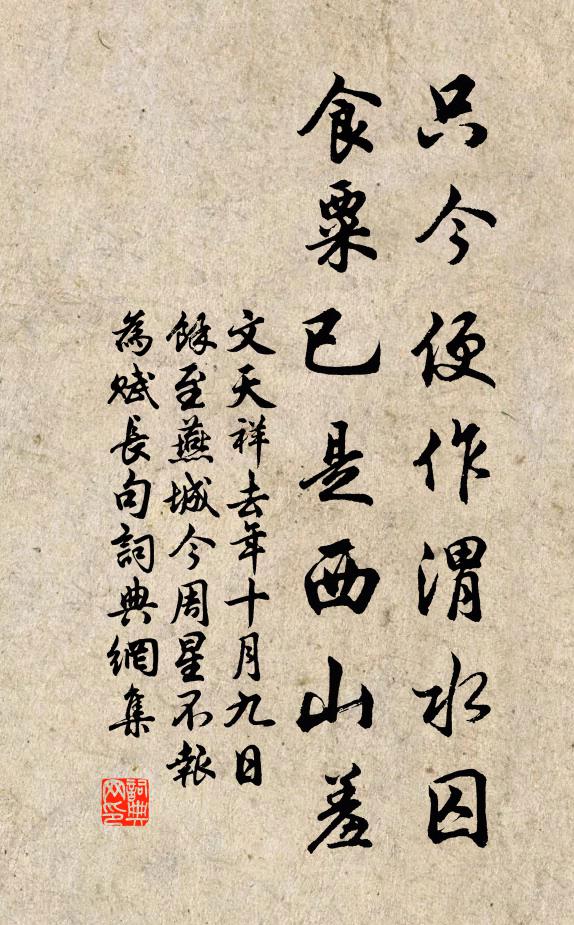 只今便作渭水囚
食粟已是西山羞
文天祥去年十月九日
餘至燕城今周星不報
為賦長句詞典網集
詞典網印